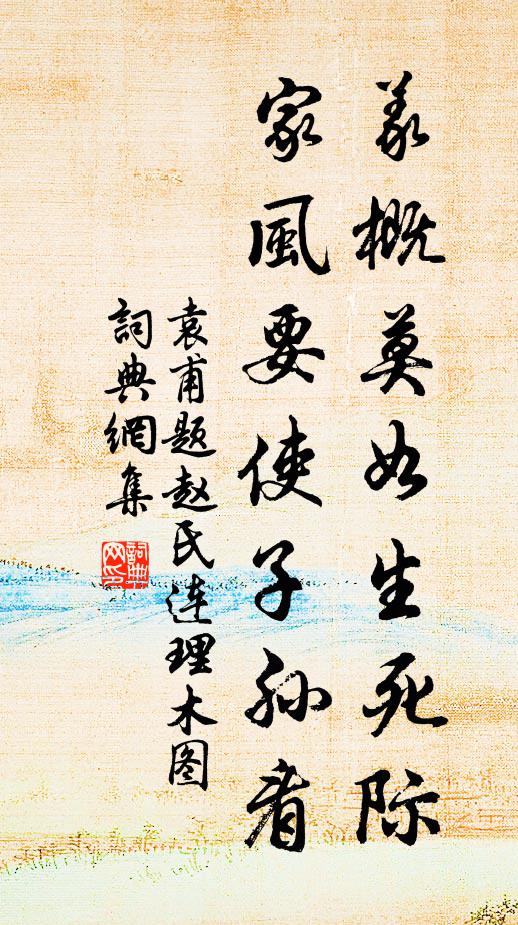 義概莫如生死际
家風要使子孙看
袁甫题赵氏连理木图
詞典網集